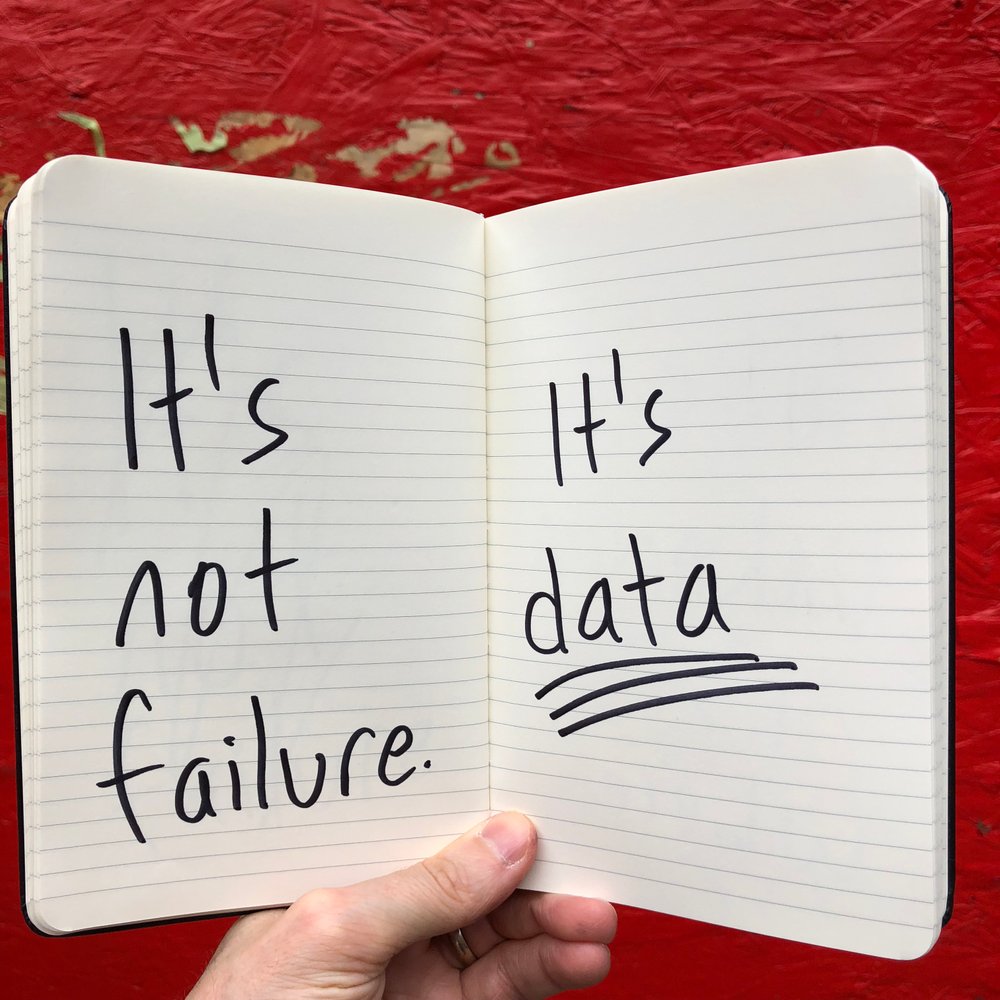 It's
not
failure.
It's
data